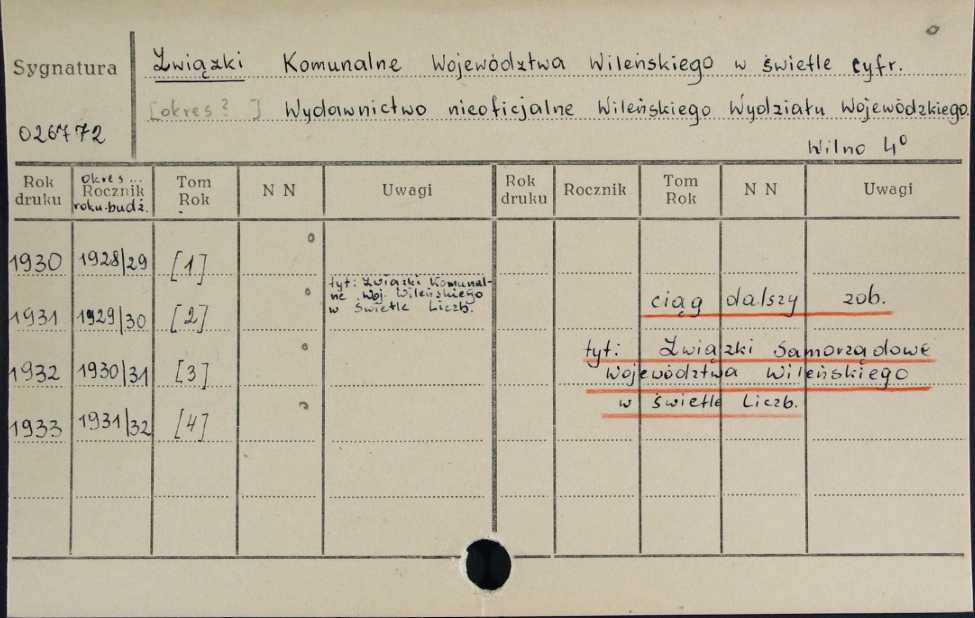 Sygnatura
026772
Związki Komunalne Województwa Wileńskiego w świetle cyfr.
[okres? ] Wydawnictwo nieoficjalne Wileńskiego Wydziału Wojewódzkiego.
Wilno 4°
Rok druku
okres... Rocznik roku budż.
Tom Rok
N N
Uwagi
Rok druku
Rocznik
Tom Rok
N N
Uwagi
1930 1928/29 [1]
tyt: Związki Komunal-
ne Woj. Wileńskiego
w Świetle Liczb.
1931 1929/30 [2]
1932 1930/31 [3]
1933 1931/32 [4]
ciąg dalszy zob.
tyt: Związki Samorządowe
Województwa Wileńskiego
w świetle Liczb.